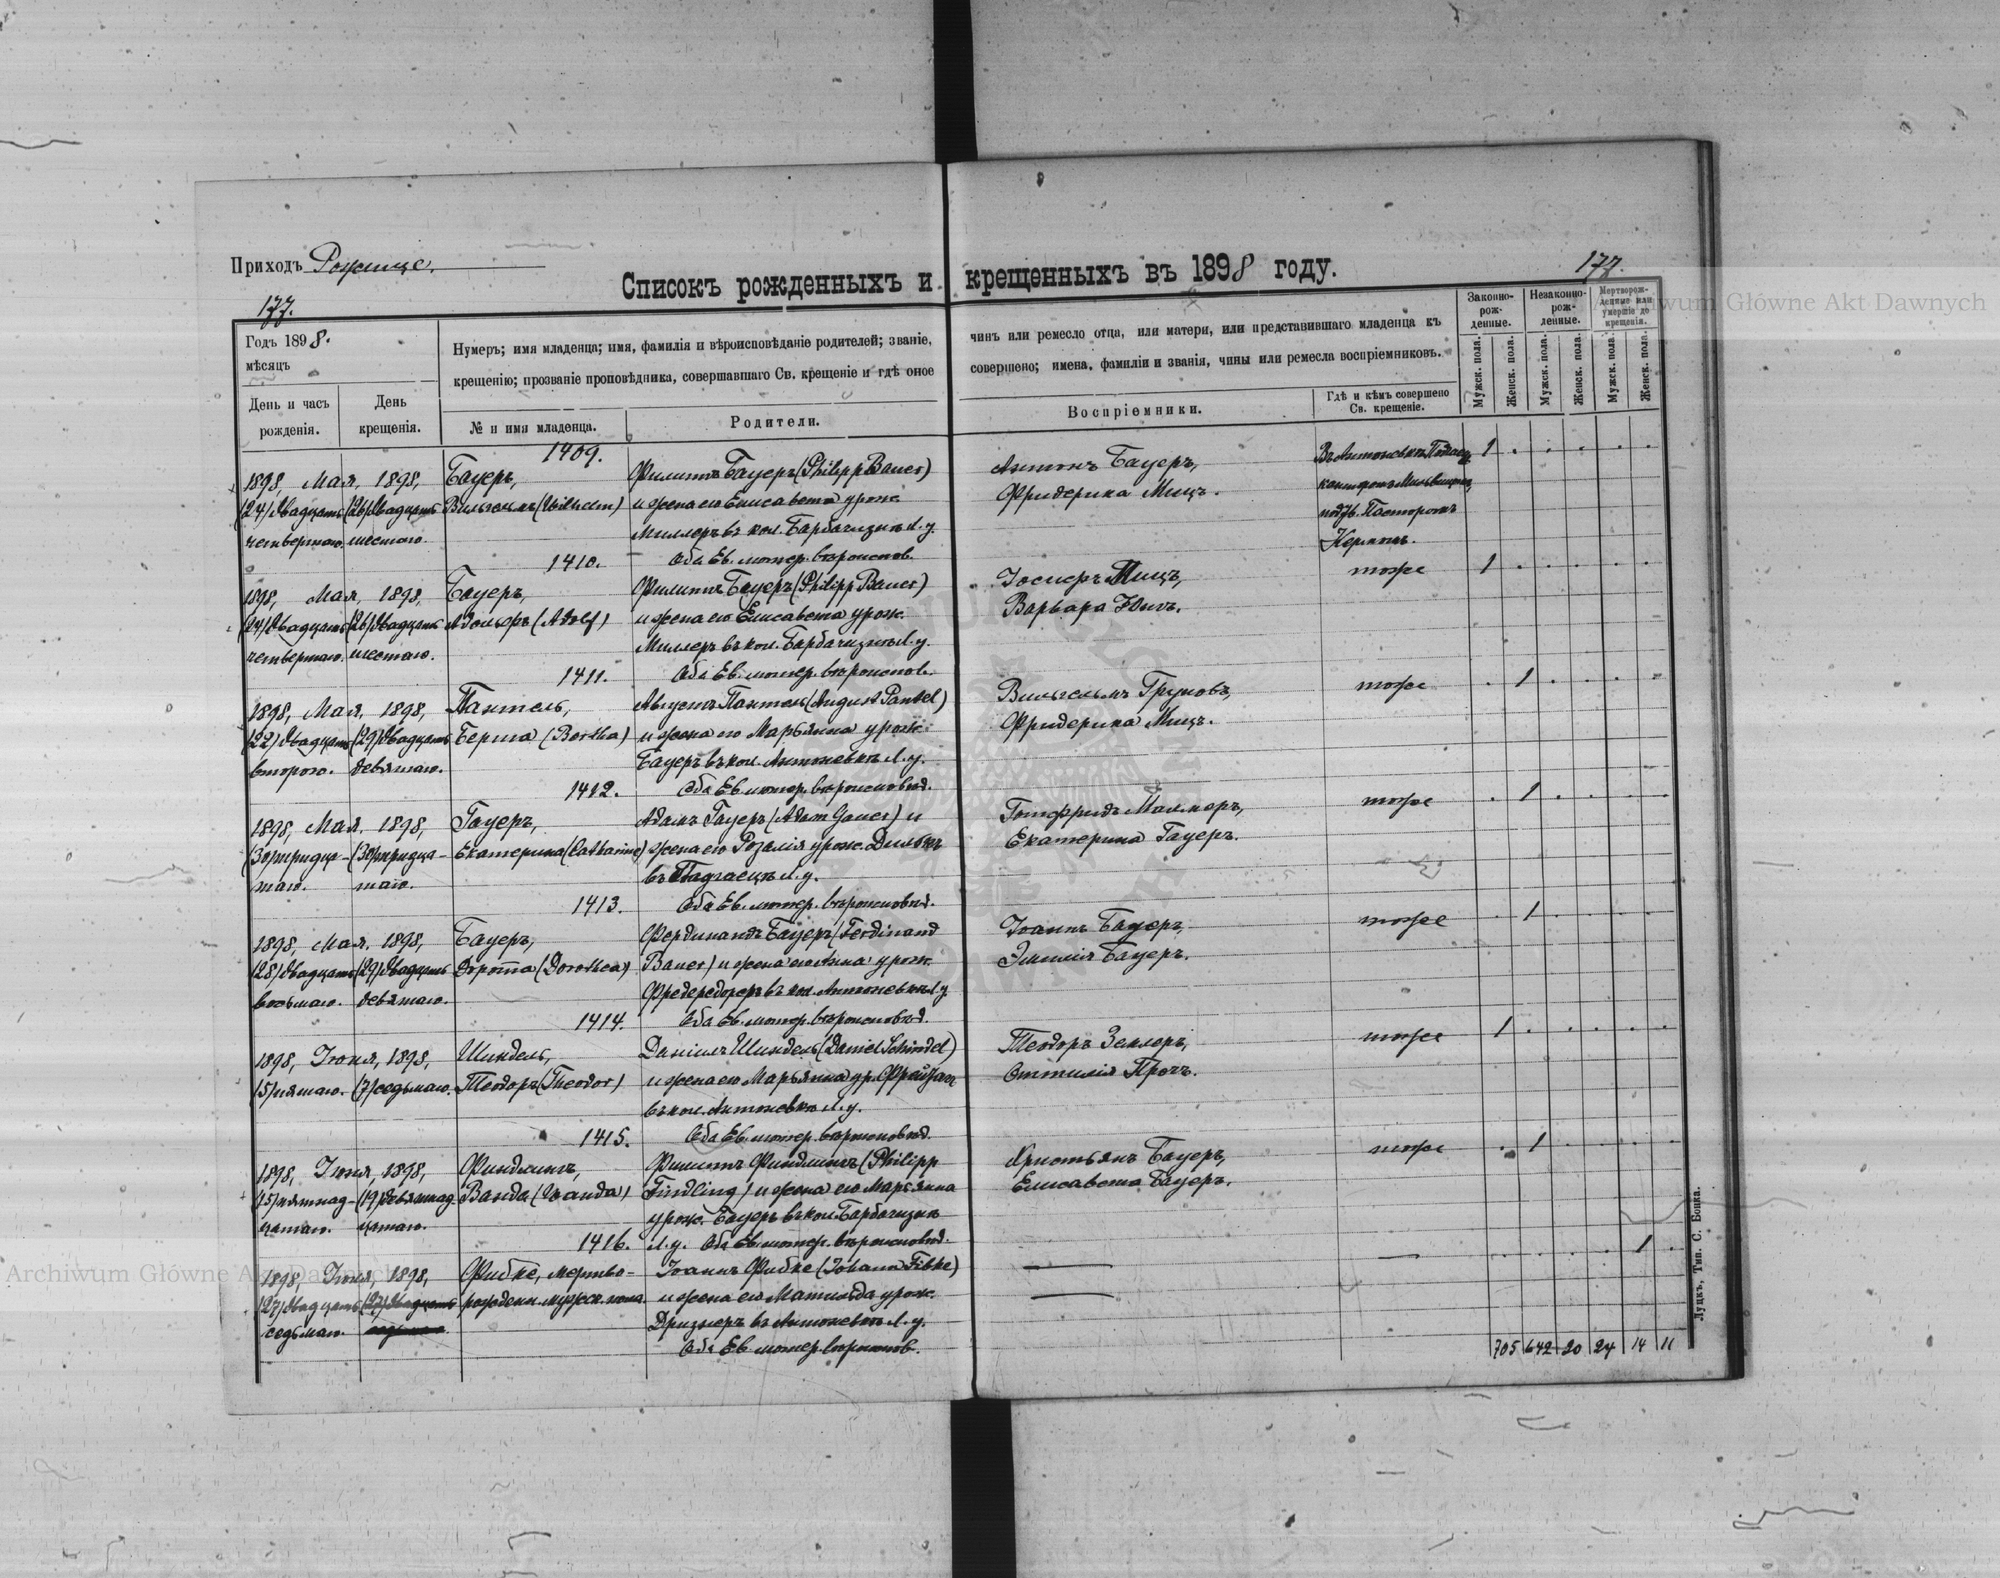 Приходъ Рожище.
Списокъ рожденныхъ и крещенныхъ въ 1898 году.
177.
177.
Годъ 1898.
мѣсяцъ
День и часъ рожденія.
День крещенія.
Нумеръ; имя младенца; имя, фамилія и вѣроисповѣданіе родителей; званіе, чинъ или ремесло отца, или матери, или представившаго младенца къ
крещенію; прозваніе проповѣдника, совершавшаго Св. крещеніе и гдѣ оное совершено; имена, фамиліи и званія, чины или ремесла воспріемниковъ.
№ и имя младенца.
Родители.
Воспріемники.
Гдѣ и кѣмъ совершено Св. крещеніе.
Законно-рож-денные.
Незаконно-рож-денные.
Мертворож-денные или умершіе до крещенія.
Мужск. пола.
Женск. пола.
Мужск. пола.
Женск. пола.
Мужск. пола.
Женск. пола.
1409.
1898, Мая, 1898,
(24) двадцать (26) двадцать
четвертаго. шестаго.
Бауеръ,
Вильгельмъ (Wilhelm)
Филиппъ Бауеръ (Philipp Bauer)
и жена его Елисавета урож.
Миллеръ въ кол. Барбачизнѣ Л. у.
Оба Ев. лютер. вѣроиспов.
Антонъ Бауеръ,
Фридерика Мицъ.
Въ Антоновкѣ
Пасторомъ
Керммъ.
1
1410.
1898, Мая, 1898,
(24) двадцать (26) двадцать
четвертаго. шестаго.
Бауеръ,
Адольфъ (Adolf)
Филиппъ Бауеръ (Philipp Bauer)
и жена его Елисавета урож.
Миллеръ въ кол. Барбачизнѣ Л. у.
Оба Ев. лютер. вѣроиспов.
Іосифъ Мицъ,
Варвара
тоже
1
1411.
1898, Мая, 1898,
(22) двадцать (29) двадцать
втораго. девятаго.
Пантель,
Берта (Bertha)
Августъ Пантель (August Pantel)
и жена его Марьянна урож.
Бауеръ въ кол. Антоновкѣ Л. у.
Оба Ев. лютер. вѣроисповѣд.
Вильгельмъ Груновъ,
Фридерика Мицъ.
тоже
1
1412.
1898, Мая, 1898,
(30) тридца- (30) тридца-
таго. таго.
Гауеръ,
Екатерина (Catharine)
Адамъ Гауеръ (Adam Gauer) и
жена его Розалія урож.
въ Л. у.
Оба Ев. лютер. вѣроисповѣд.
Готфридъ
Екатерина Гауеръ.
тоже
1
1413.
1898, Мая, 1898,
(28) двадцать (29) двадцать
восьмаго. девятаго.
Бауеръ,
Доротта (Dorothea)
Фердинандъ Бауеръ (Ferdinand
Bauer) и жена его Анна урож.
въ кол. Антоновкѣ Л. у.
Оба Ев. лютер. вѣроисповѣд.
Іоаннъ Бауеръ,
Эмилія Бауеръ.
тоже
1
1414.
1898, Іюня, 1898,
(5) пятаго. (7) седьмаго.
Шиндель,
Теодоръ (Theodor)
Даніилъ Шиндель (Daniel Schindel)
и жена его Марьянна ур.
въ кол. Антоновкѣ Л. у.
Оба Ев. лютер. вѣроисповѣд.
Теодоръ
Оттилія
тоже
1
1415.
1898, Іюня, 1898,
(15) пятнад- (19) девятнад-
цатаго. цатаго.
Финдлингъ,
Ванда (Wanda)
Филиппъ Финдлингъ (Philipp
Findling) и жена его Марьянна
урож. Бауеръ въ кол. Барбачизнѣ
Л. у. Оба Ев. лютер. вѣроисповѣд.
Христьянъ Бауеръ,
Елисавета Бауеръ.
тоже
1
1416.
1898, Іюня, 1898,
(27) двадцать (27) двадцать
седьмаго.
Фибке, мертво-
рожденн. мужск. пола
Іоаннъ Фибке (Johann Fibke)
и жена его Матильда урож.
въ Антоновкѣ Л. у.
Оба Ев. лютер. вѣроиспов.
1
705 642 20 24 14 11
Луцкъ, Тип. С. Бонка.
Archiwum Główne Akt Dawnych
Archiwum Główne Akt Dawnych